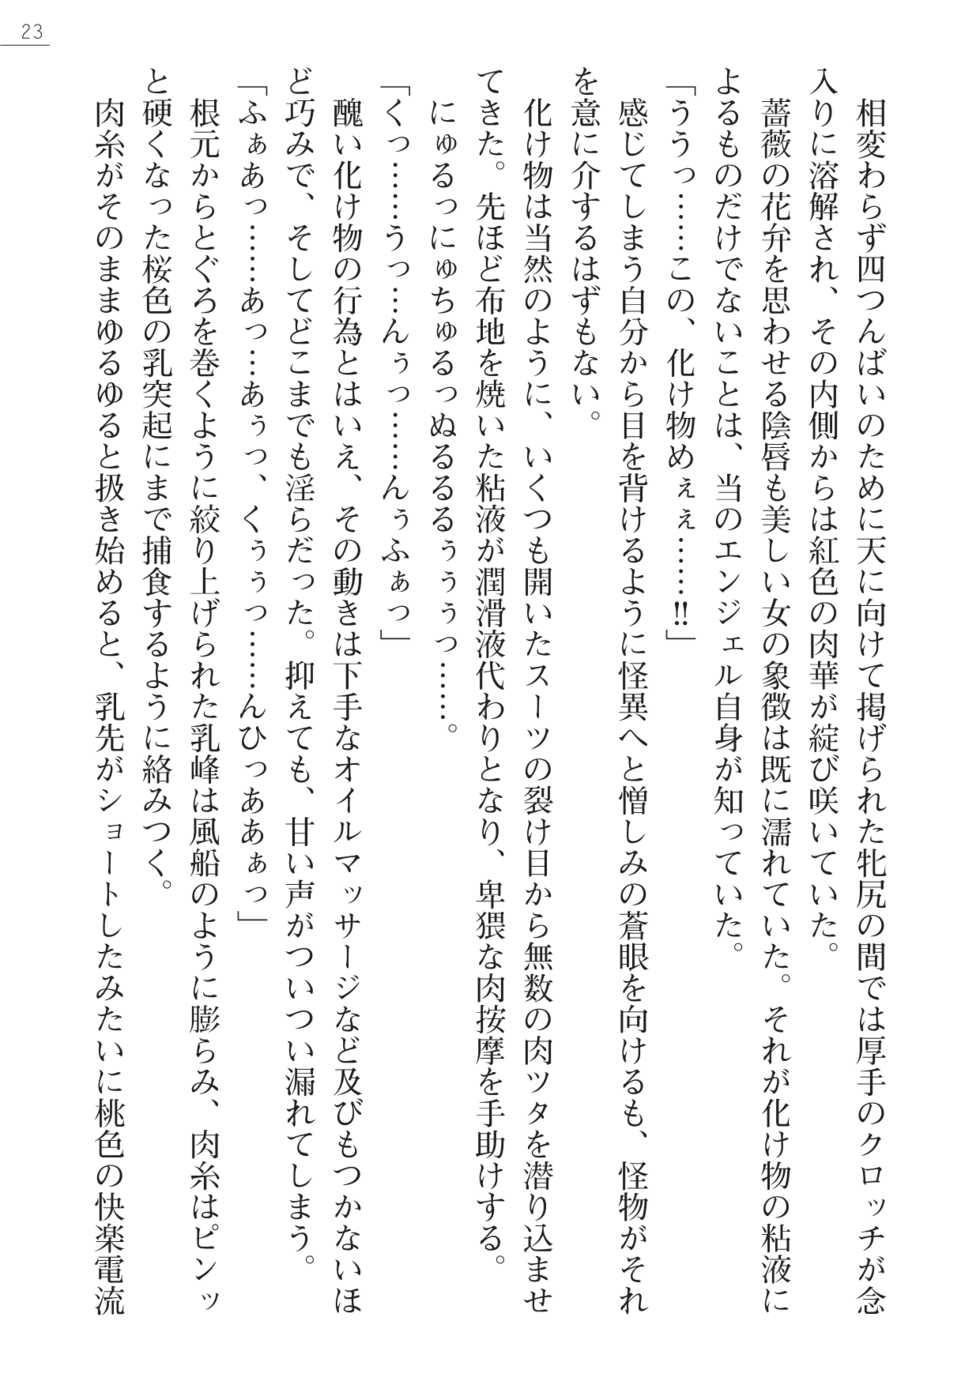 23
　相変わらず四つんばいのために天に向けて掲げられた牝尻の間では厚手のクロッチが念
入りに溶解され、その内側からは紅色の肉華が綻び咲いていた。
　薔薇の花弁を思わせる陰唇も美しい女の象徴は既に濡れていた。それが化け物の粘液に
よるものだけでないことは、当のエンジェル自身が知っていた。
「ううっ……この、化け物めぇぇ……‼」
　感じてしまう自分から目を背けるように怪異へと憎しみの蒼眼を向けるも、怪物がそれ
を意に介するはずもない。
　化け物は当然のように、いくつも開いたスーツの裂け目から無数の肉ツタを潜り込ませ
てきた。先ほど布地を焼いた粘液が潤滑液代わりとなり、卑猥な肉按摩を手助けする。
　にゅるっにゅちゅるっぬるるるぅぅぅっ……。
「くっ……うっ…んぅっ……んぅふぁっ」
　醜い化け物の行為とはいえ、その動きは下手なオイルマッサージなど及びもつかないほ
ど巧みで、そしてどこまでも淫らだった。抑えても、甘い声がついつい漏れてしまう。
「ふぁあっ……あっ…あぅっ、くぅぅっ……んひっああぁっ」
　根元からとぐろを巻くように絞り上げられた乳峰は風船のように膨らみ、肉糸はピンッ
と硬くなった桜色の乳突起にまで捕食するように絡みつく。
　肉糸がそのままゆるゆると扱き始めると、乳先がショートしたみたいに桃色の快楽電流